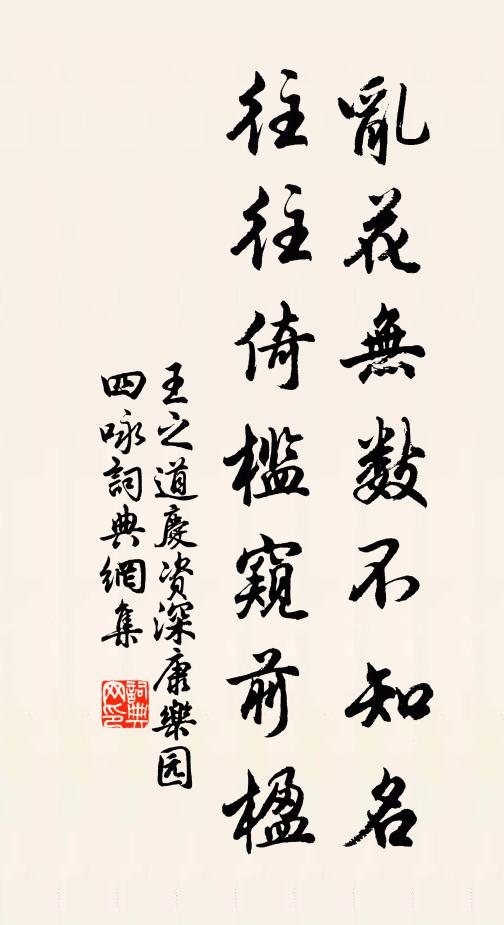 亂花無数不知名
往往倚檻窺前楹
王之道慶资深康樂园
四咏詞典網集
詞典网印